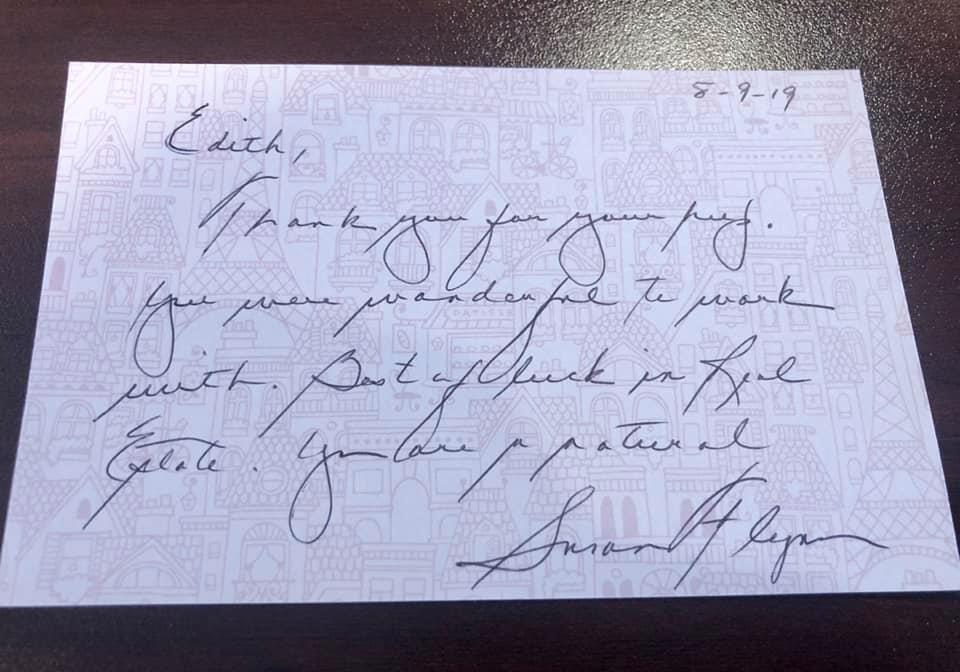 8-9-19
Edith,
Thank you for your help.
You were wonderful to work
with. Best of luck in Real
Estate. You are a natural
Susan Flynn